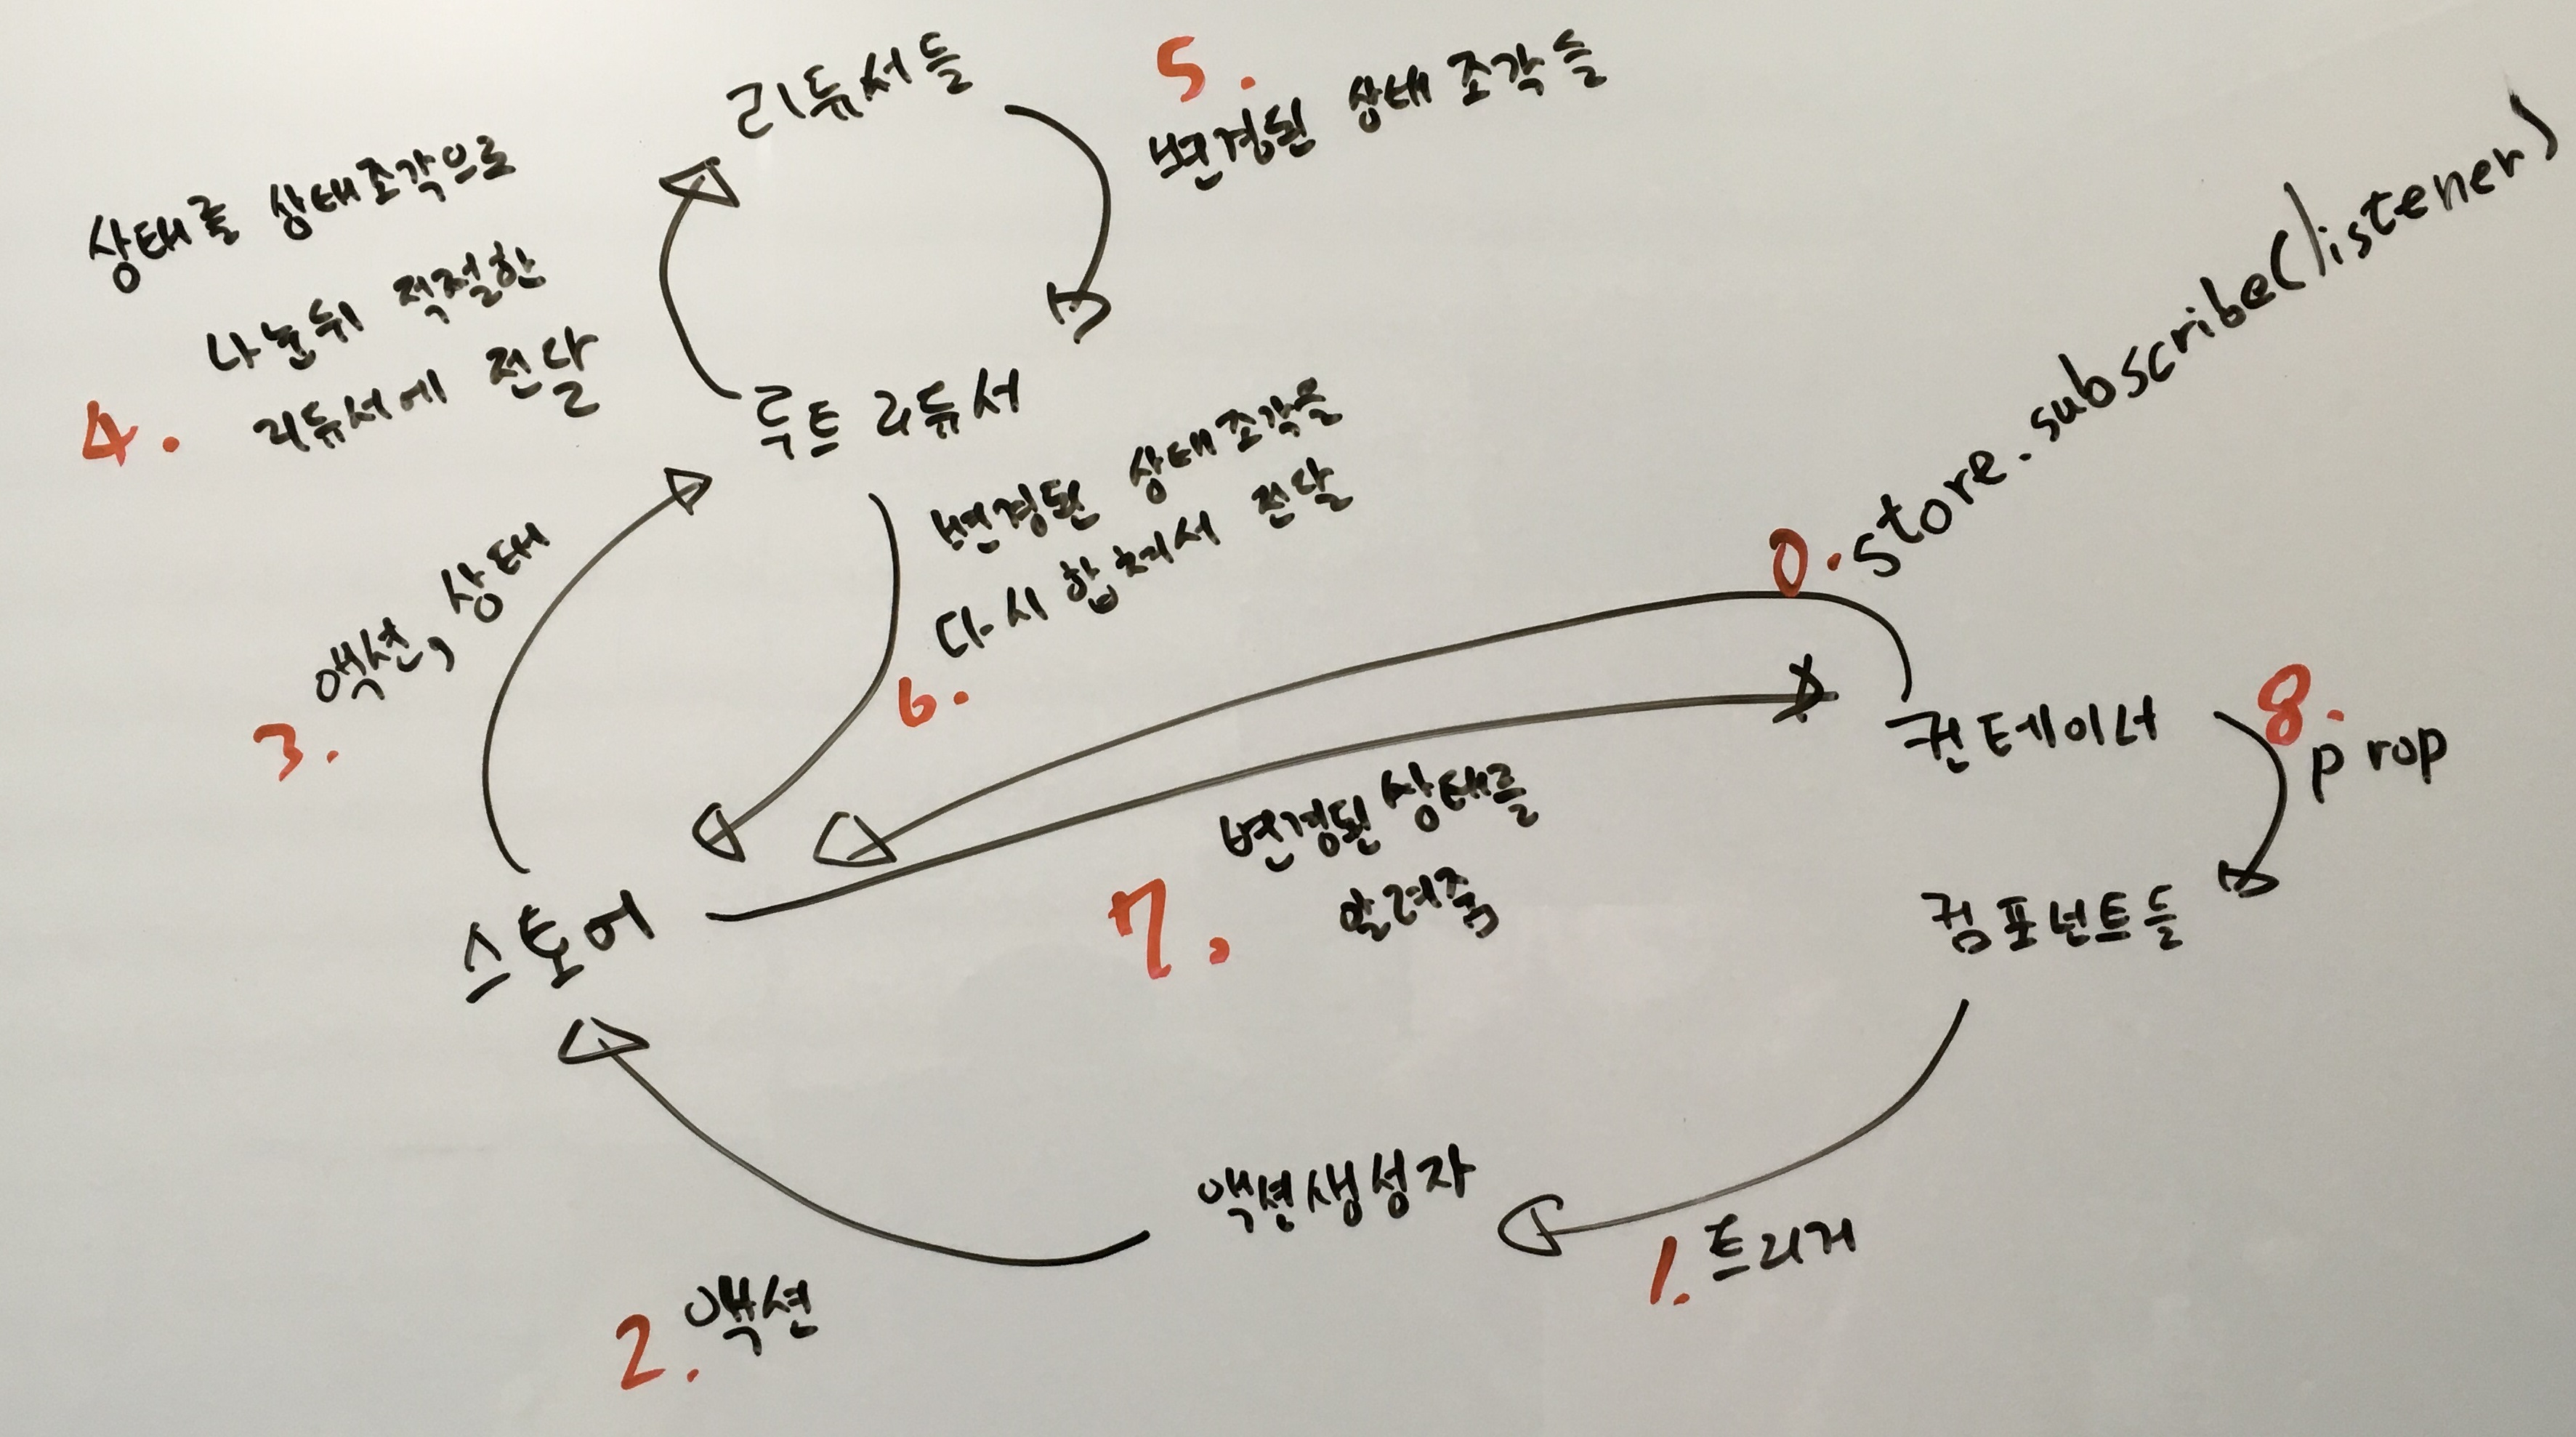 리듀서들
5.
변경된 상태 조각들
상태를 상태조각으로
나눈뒤 적절한
4. 리듀서에 전달
루트 리듀서
변경된 상태조각을
다시 합쳐서 전달
6.
3. 액션, 상태
0. store.subscribe(listener)
컨테이너
8.
prop
변경된 상태를
7. 알려줌
스토어
컴포넌트들
액션생성자
1. 트리거
2. 액션